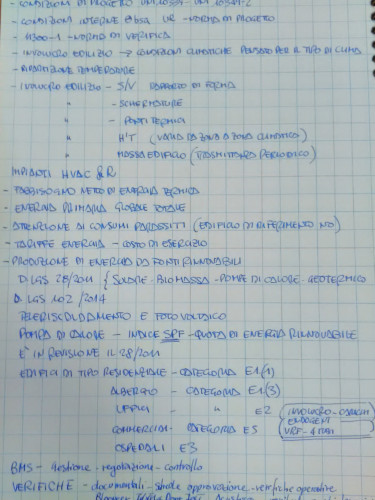 - CONDIZIONI DI PROGETTO UNI 10339 - UNI 10349-2
- CONDIZIONI INTERNE E UR - NORMA DI PROGETTO
- 11300-1 - NORMA DI VERIFICA
- INVOLUCRO EDILIZIO → CONDIZIONI CLIMATICHE PENSATO PER IL TIPO DI CLIMA
- RIPARTIZIONE TEMPERATURE
- INVOLUCRO EDILIZIO - S/V RAPPORTO DI FORMA
" - SCHERMATURE
" - PONTI TERMICI
" H'T (VARIA DA ZONA A ZONA CLIMATICA)
" MASSA EDIFICIO (TRASMITTANZA PERIODICA)
IMPIANTI HVAC & R
- FABBISOGNO NETTO DI ENERGIA TERMICA
- ENERGIA PRIMARIA GLOBALE TOTALE
- ATTENZIONE AI CONSUMI PARASSITI (EDIFICIO DI RIFERIMENTO NO)
- TARIFFE ENERGIA - COSTO DI ESERCIZIO
- PRODUZIONE DI ENERGIA DA FONTI RINNOVABILI
D.LGS 28/2011 { SOLARE - BIOMASSA - POMPE DI CALORE - GEOTERMICO
D.LGS 102/2014
TELERISCALDAMENTO E FOTOVOLTAICO
POMPA DI CALORE - INDICE SPF - QUOTA DI ENERGIA RINNOVABILE
E' IN REVISIONE IL 28/2011
EDIFICI DI TIPO RESIDENZIALE - CATEGORIA E1(1)
ALBERGO - CATEGORIA E1(3)
UFFICI - " E2 (INVOLUCRO - CARICHI
ENDOGENI
COMMERCIALI CATEGORIA E5 VRF - 4 TUBI)
OSPEDALI E3
BMS - Gestione - regolazione - controllo
VERIFICHE - documentali - scheda approvazione - verifiche operative